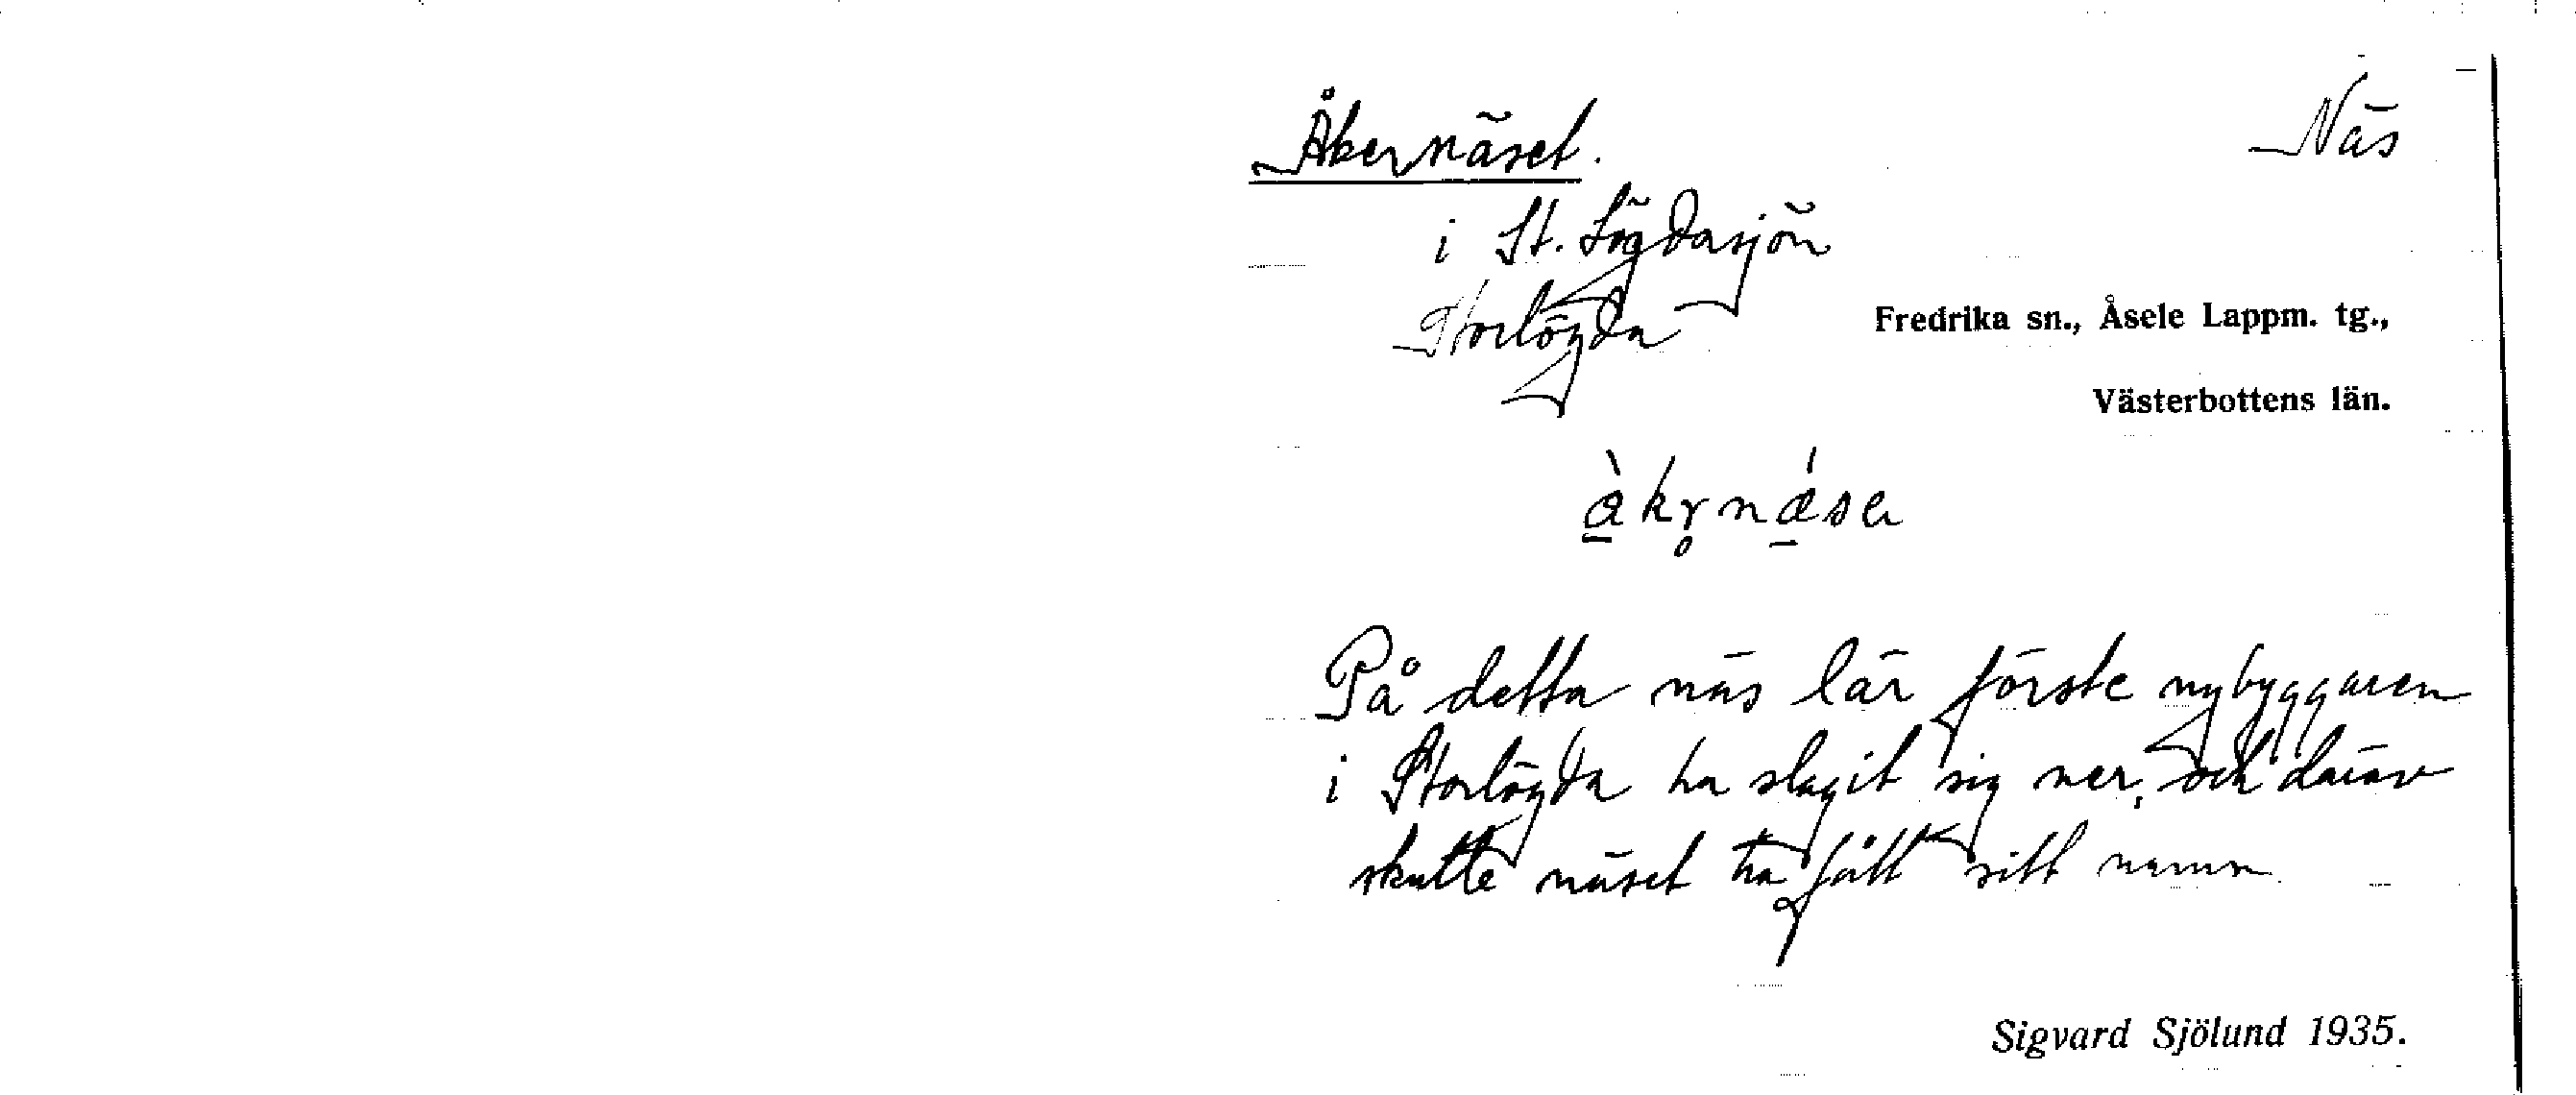 Åkernäset. Näs
i St. Lögdasjön
Storlögda Fredrika sn., Åsele Lappm. tg.,
Västerbottens län.
På detta näs lär förste nybyggaren
i Storlögda ha slagit sig ner, och därav
skulle näset ha fått sitt namn.
Sigvard Sjölund 1935.